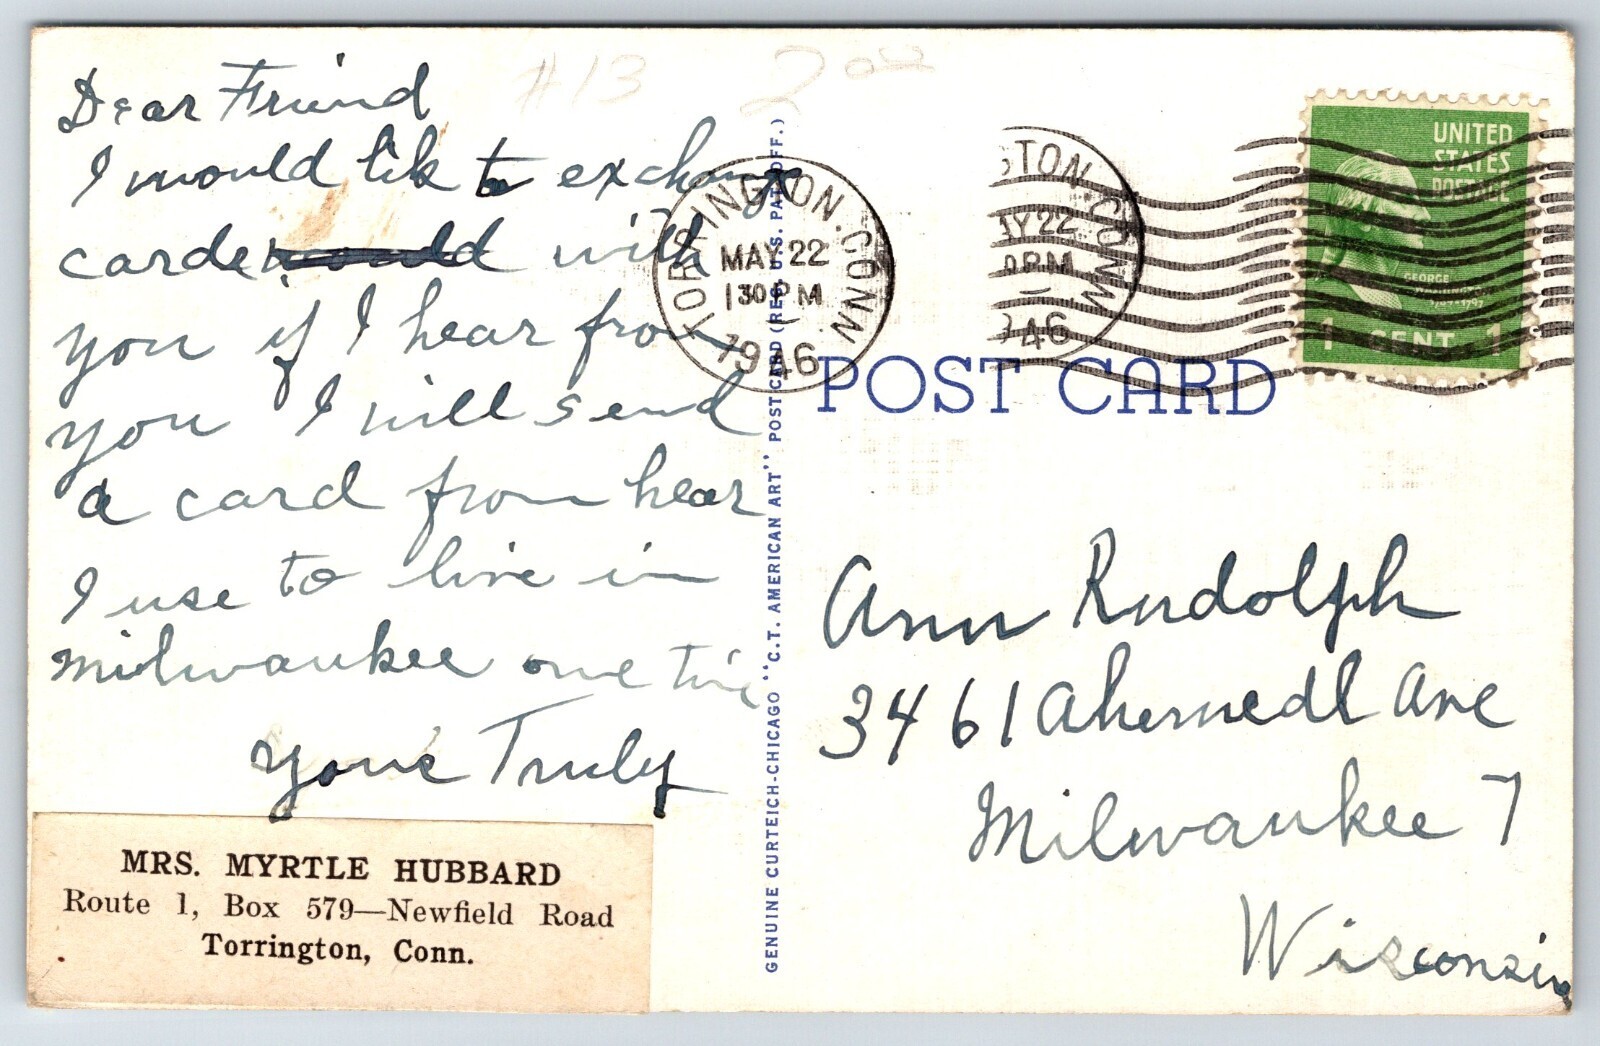 #13
2.00
Dear Friend
I would lik to exchange
cards would with
you if I hear from
you I will send
a card from hear
I use to live in
milwaukee one time
Your's Truly
MRS. MYRTLE HUBBARD
Route 1, Box 579—Newfield Road
Torrington, Conn.
GENUINE CURTEICH-CHICAGO "C.T. AMERICAN ART" POST CARD (REG. U.S. PAT. OFF.)
TORRINGTON, CONN.
MAY 22
1 30 PM
1946
GTON, CONN.
AY 22
0 PM
946
UNITED
STATES
POSTAGE
GEORGE
1 CENT 1
POST CARD
Ann Rudolph
3461 Ahernedl Ave
Milwaukee 7
Wisconsin